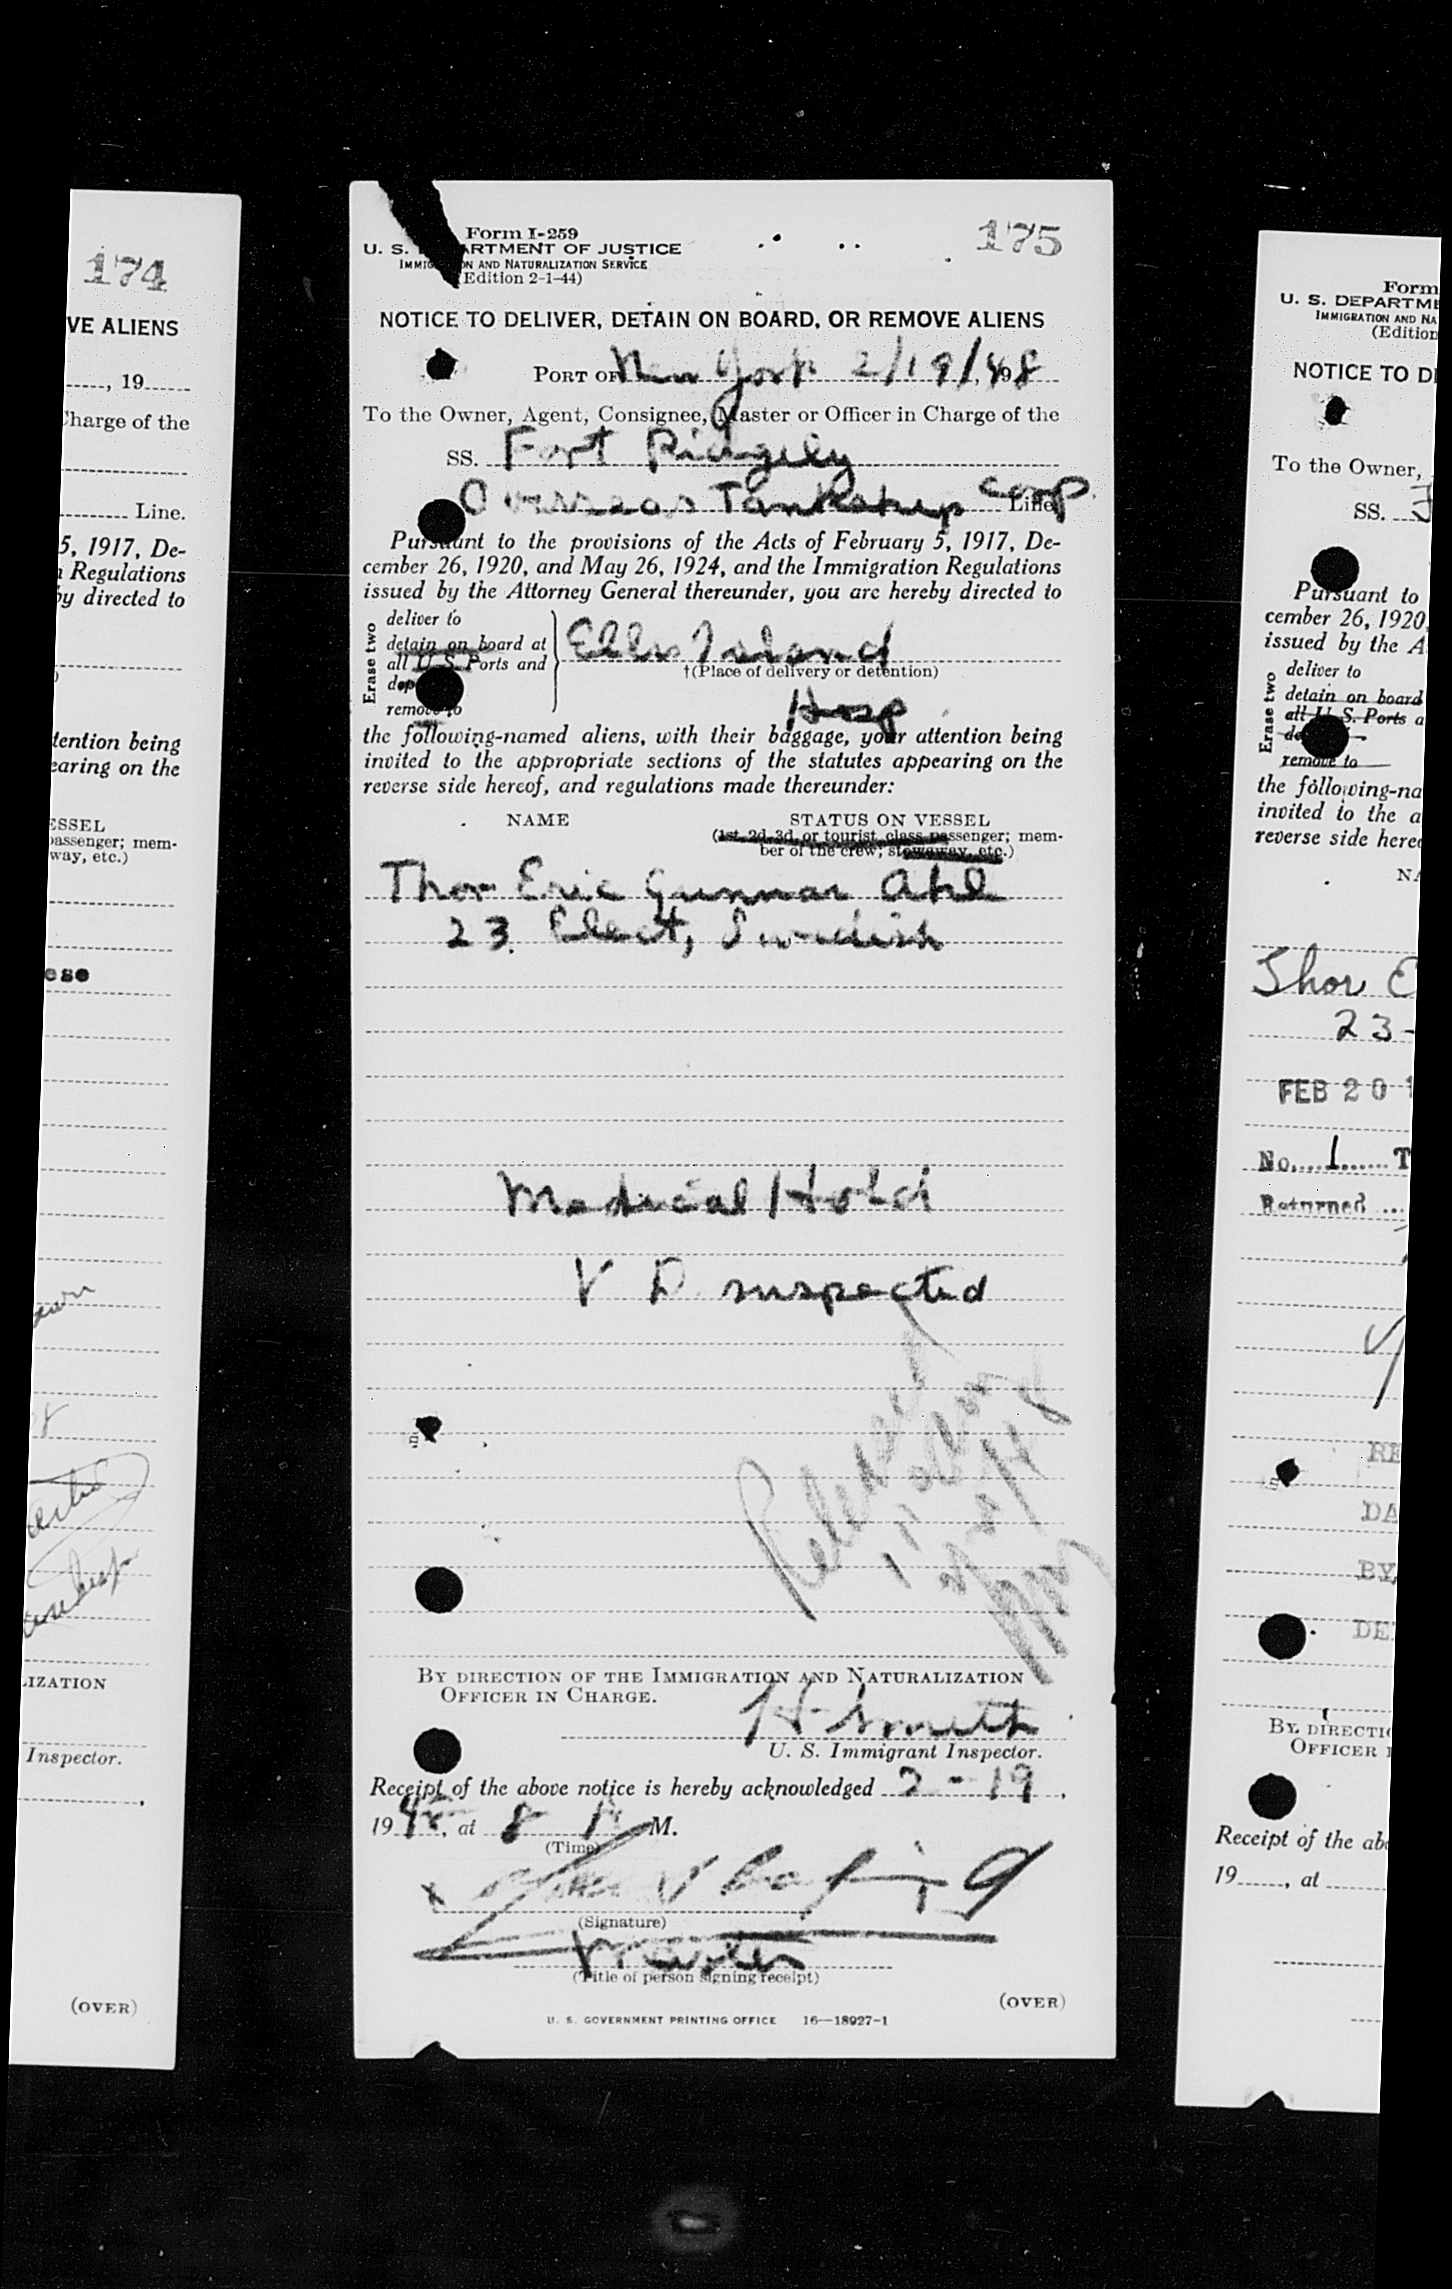 174
VE ALIENS
, 19
harge of the
Line.
5, 1917, De-
Regulations
by directed to
tention being
earing on the
ESSEL
passenger; mem-
way, etc.)
ese
LIZATION
Inspector.
(OVER)
175
Form I-259
U. S. DEPARTMENT OF JUSTICE
IMMIGRATION AND NATURALIZATION SERVICE
(Edition 2-1-44)
NOTICE TO DELIVER, DETAIN ON BOARD, OR REMOVE ALIENS
PORT OF New York 2/19/, 1948
To the Owner, Agent, Consignee, Master or Officer in Charge of the
SS. Fort Ridgely
Overseas Tankship Corp. Line
Pursuant to the provisions of the Acts of February 5, 1917, De-
cember 26, 1920, and May 26, 1924, and the Immigration Regulations
issued by the Attorney General thereunder, you are hereby directed to
Erase two
deliver to
detain on board at
all U. S. Ports and
dep
remove to
Ellis Island
†(Place of delivery or detention)
Hosp
the following-named aliens, with their baggage, your attention being
invited to the appropriate sections of the statutes appearing on the
reverse side hereof, and regulations made thereunder:
NAME STATUS ON VESSEL
(1st, 2d, 3d, or tourist class passenger; mem-
ber of the crew; stowaway, etc.)
Thor Eric Gunnar Ahl
23. Elect, Swedish
Medical Hold
V D suspected
Released
BY DIRECTION OF THE IMMIGRATION AND NATURALIZATION
OFFICER IN CHARGE.
H. Smith
U. S. Immigrant Inspector.
Receipt of the above notice is hereby acknowledged 2-19,
1948, at 8 A M.
(Time)
x
(Signature)
Master
(Title of person signing receipt)
(OVER)
U. S. GOVERNMENT PRINTING OFFICE 16—18927-1
Form
U. S. DEPARTME
IMMIGRATION AND NA
(Edition
NOTICE TO D
To the Owner,
SS.
Pursuant to
cember 26, 1920
issued by the A
Erase two
deliver to
detain on board
all U. S. Ports a
de
remove to
the following-na
invited to the a
reverse side here
NA
Thor E
23-
FEB 20
No. 1 T
Returned
RE
DA
BY
DE
BY DIRECTI
OFFICER I
Receipt of the ab
19, at